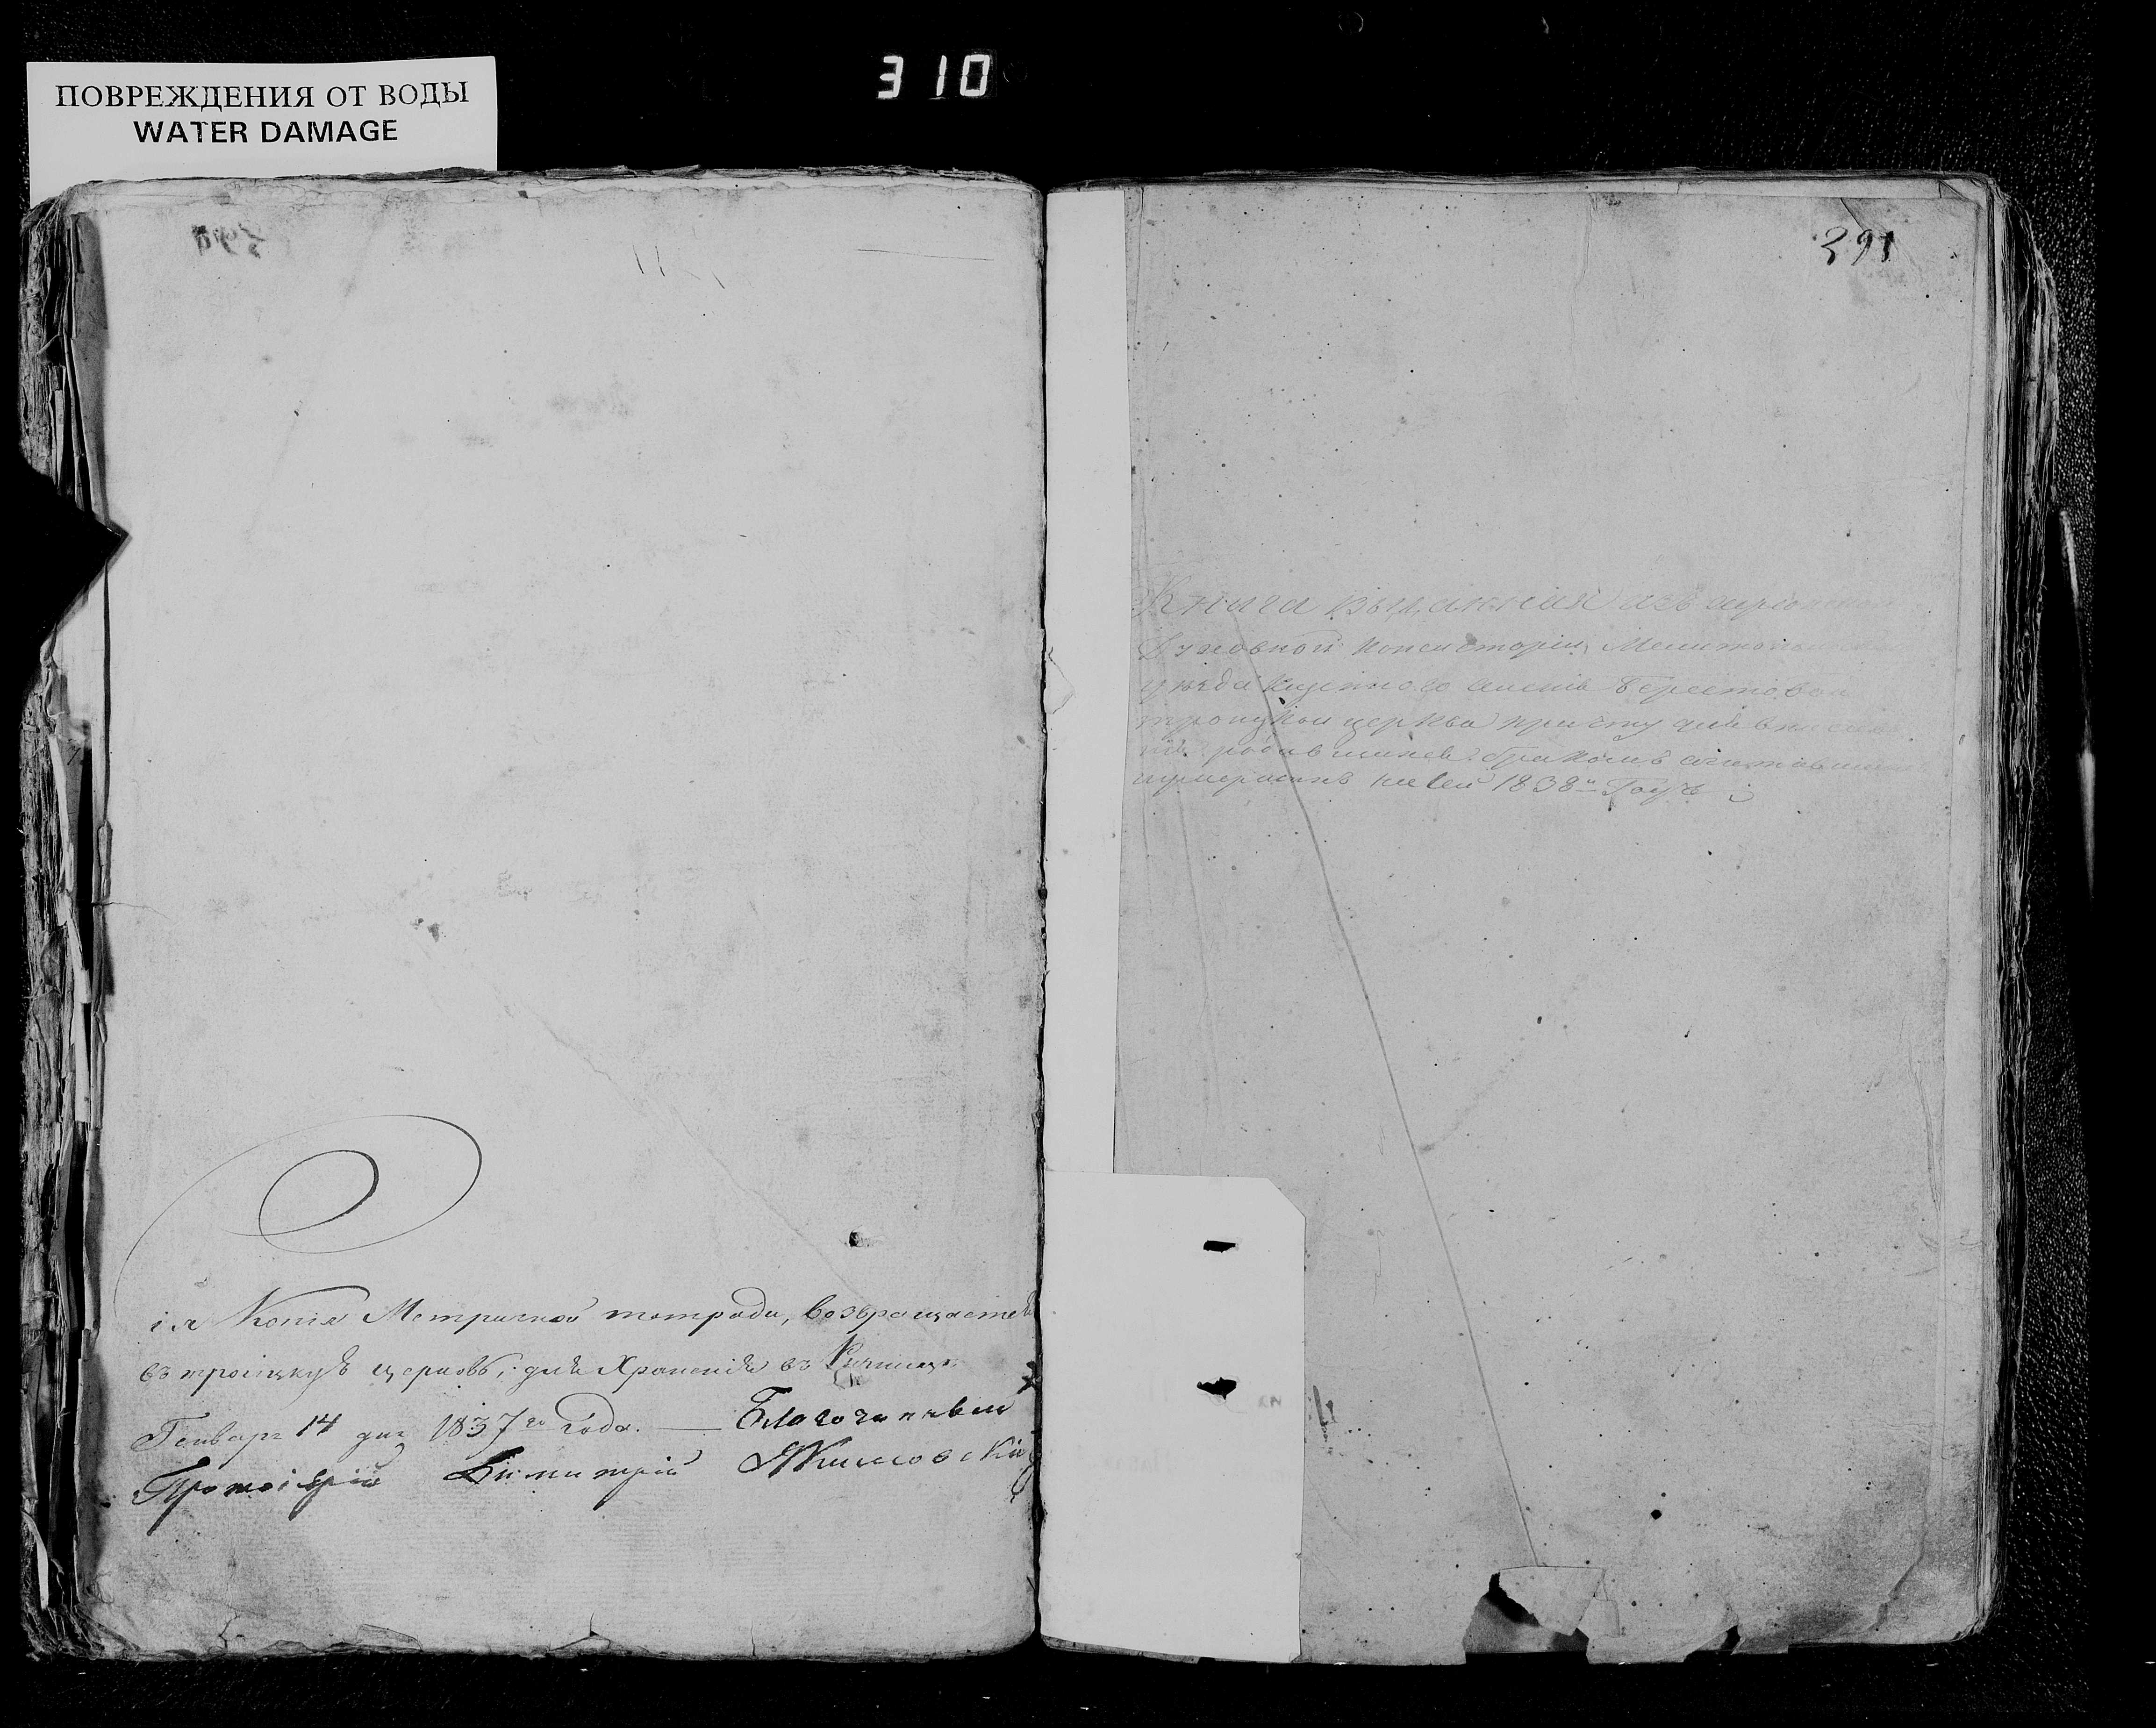 310
ПОВРЕЖДЕНИЯ ОТ ВОДЫ
WATER DAMAGE
ія Копія Метричной тетради, возвращается
въ троицкую церковь, для Храненія въ Ризницѣ
Генваря 14 дня 1837го года. — Благочинный
Протоіерей Димитрій
391
Книга выданная изъ
Духовной Консисторіи,
уѣзда казенного селенія Берестоваго
троицкой церкви причту для
родившихся браком сочетавшихся
умершихъ на 1838й Годъ